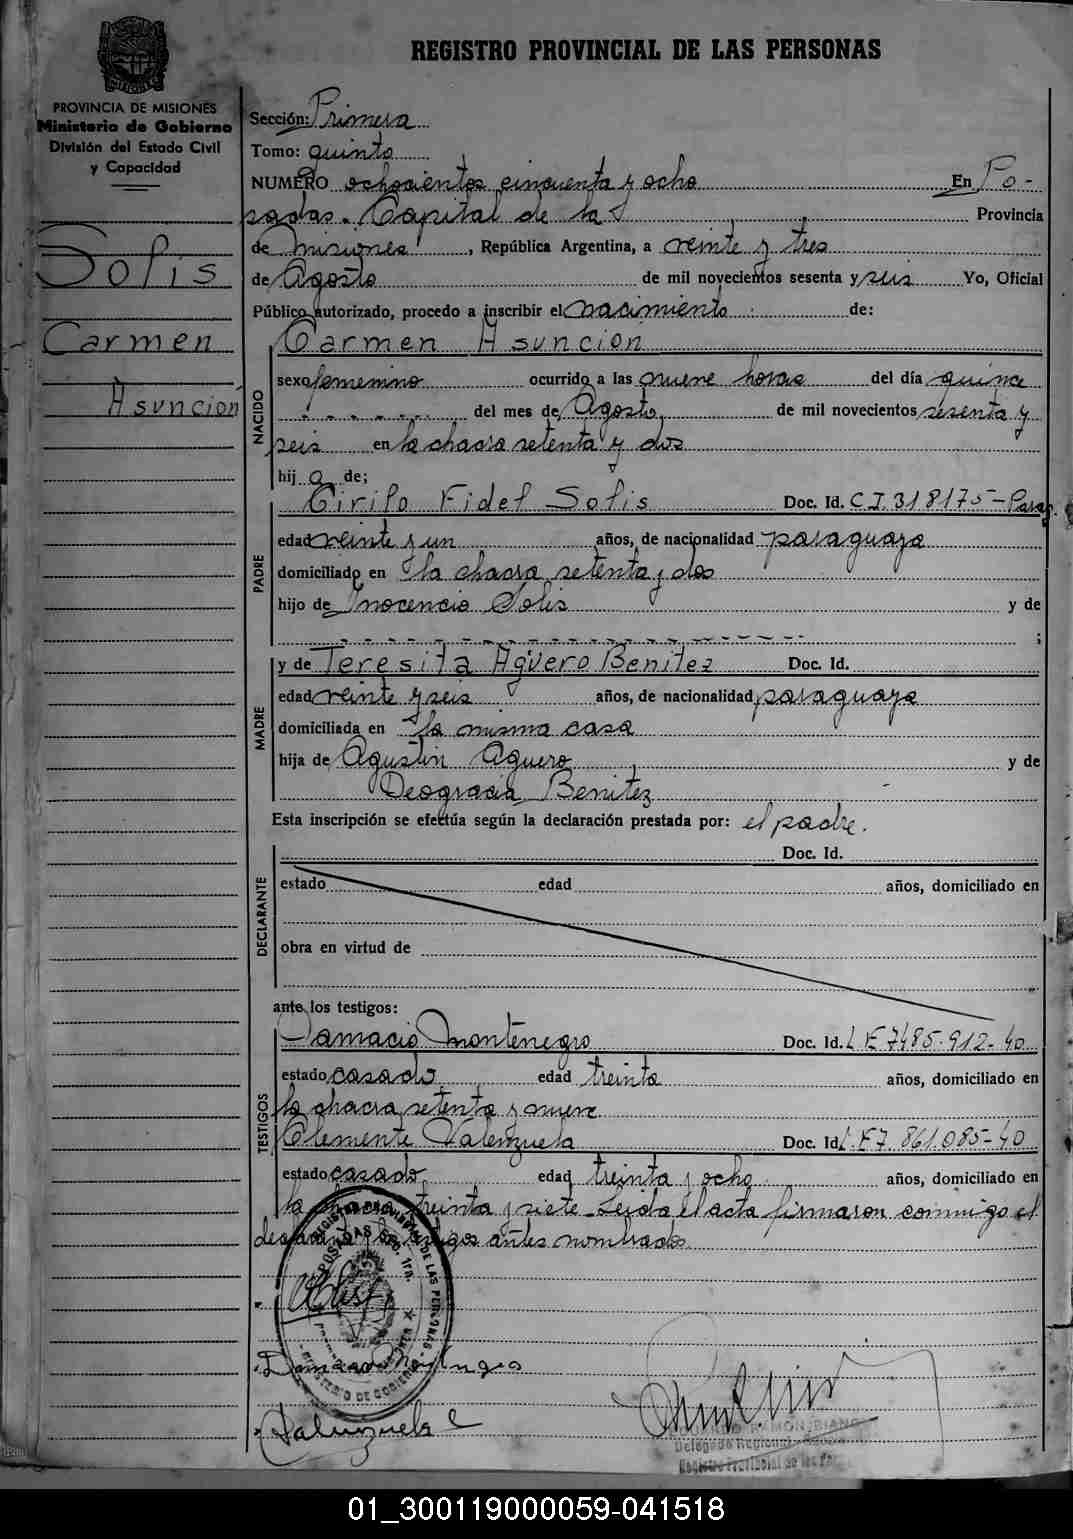 REGISTRO PROVINCIAL DE LAS PERSONAS
PROVINCIA DE MISIONES
Ministerio de Gobierno
División del Estado Civil
y Capacidad
Solis
Carmen
Asunción
Sección: Primera
Tomo: quinto
NUMERO ochocientos cincuenta y ocho En Po-
sadas. Capital de la Provincia
de Misiones, República Argentina, a veinte y tres
de Agosto de mil novecientos sesenta y seis Yo, Oficial
Público autorizado, procedo a inscribir el nacimiento de:
NACIDO
Carmen Asunción
sexo femenino ocurrido a las nueve horas del día quince
del mes de Agosto de mil novecientos sesenta y
seis en la chacra setenta y dos
hij a de;
PADRE
Cirilo Fidel Solis Doc. Id. C.I. 318175-Parag.
edad veinte y un años, de nacionalidad paraguaya
domiciliado en la chacra setenta y dos
hijo de Inocencio Solis y de
;
MADRE
y de Teresita Agüero Benitez Doc. Id.
edad veinte y seis años, de nacionalidad paraguaya
domiciliada en la misma casa
hija de Agustin Aguero y de
Deogracia Benitez
Esta inscripción se efectúa según la declaración prestada por: el padre.
DECLARANTE
Doc. Id.
estado edad años, domiciliado en
obra en virtud de
ante los testigos:
TESTIGOS
Damacio Montenegro Doc. Id. L E 7485.912-40
estado casado edad treinta años, domiciliado en
la chacra setenta y nueve
Clemente Valenzuela Doc. Id L.E 7.861.085-40
estado casado edad treinta y ocho años, domiciliado en
la chacra treinta y siete. Leida el acta firmaron conmigo el
declarante y testigos antes nombrados.
REGISTRO PROVINCIAL DE LAS PERSONAS
POSADAS Sec. 1ra.
MINISTERIO DE GOBIERNO
Solis
Damacio Montenegro
Valenzuela C
RAMON
Delegado Regional
Registro Provincial de las Per
01_300119000059-041518